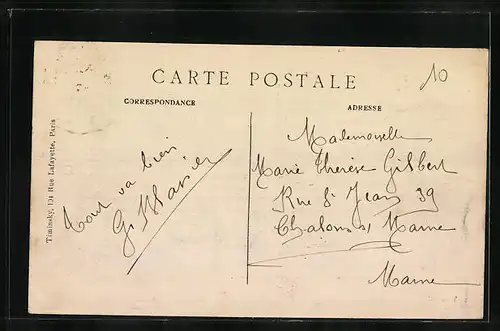 CARTE POSTALE
10
CORRESPONDANCE
ADRESSE
Tout va bien
Mademoiselle
Marie Therèse Gilbert
Rue St Jean 39
Chalons s/ Marne
Marne
Timinsky, 174 Rue Lafayette, Paris